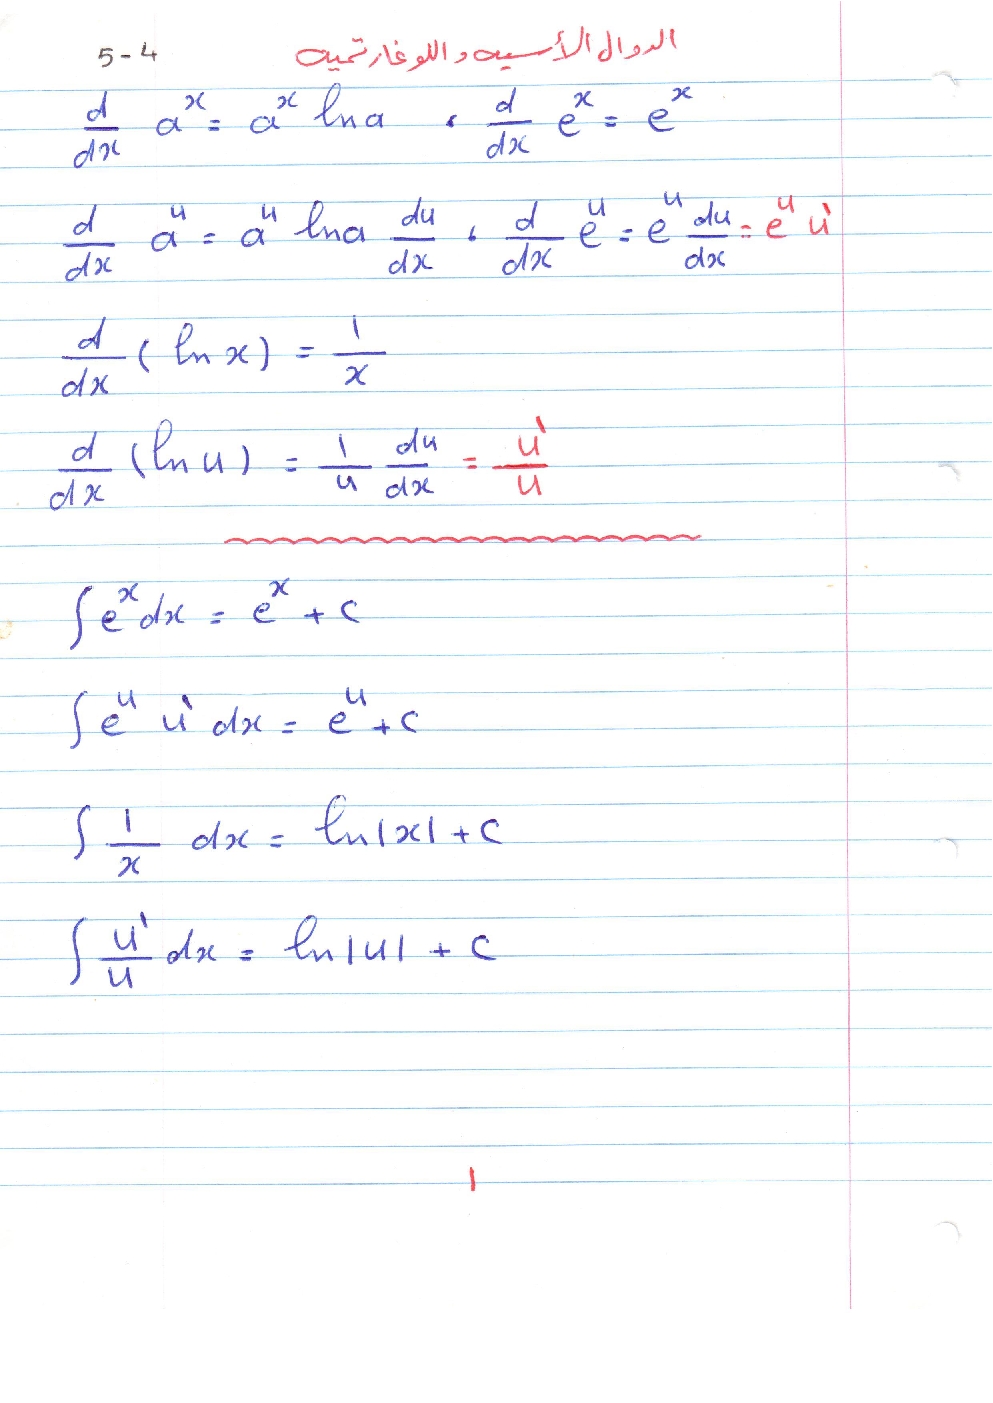 5-4 الدوال الأسيه و اللوغارتميه
d/dx a^x = a^x ln a ، d/dx e^x = e^x
d/dx a^u = a^u ln a du/dx ، d/dx e^u = e^u du/dx = e^u u'
d/dx (ln x) = 1/x
d/dx (ln u) = 1/u du/dx = u'/u
∫ e^x dx = e^x + c
∫ e^u u' dx = e^u + c
∫ 1/x dx = ln|x| + c
∫ u'/u dx = ln|u| + c
1